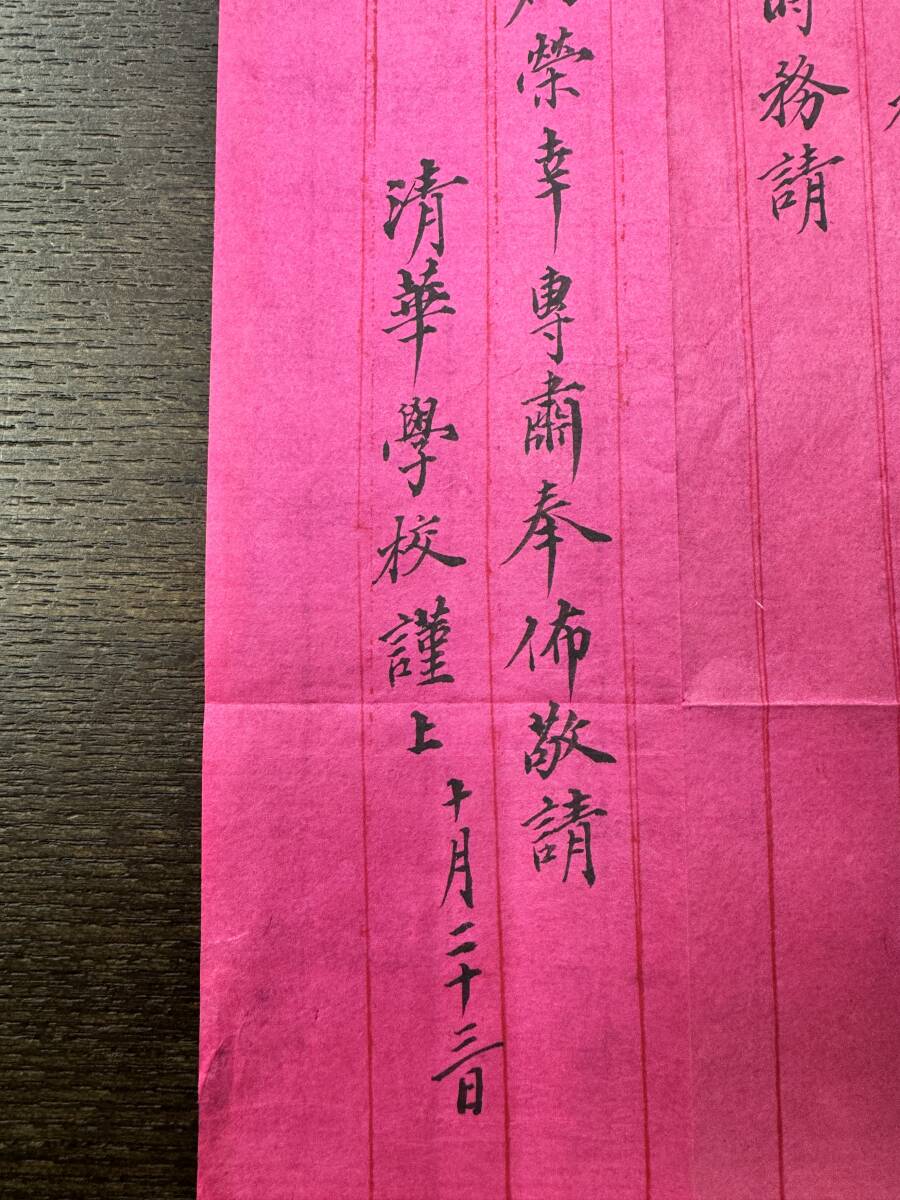 時務請
榮幸專肅奉佈敬請
清華學校謹上
十月二十三日